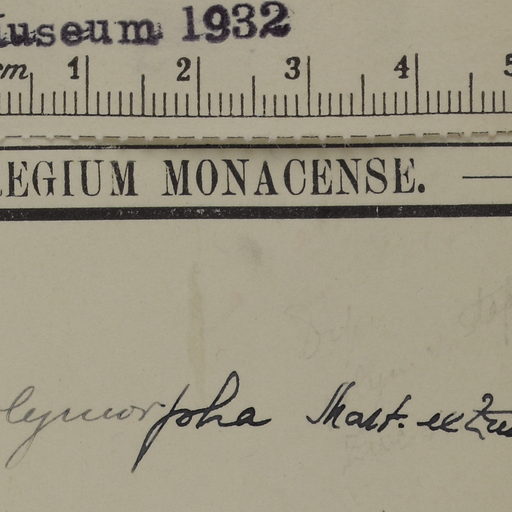 Museum 1932
cm 1 2 3 4 5
REGIUM MONACENSE.
olymorpha Mast. ex